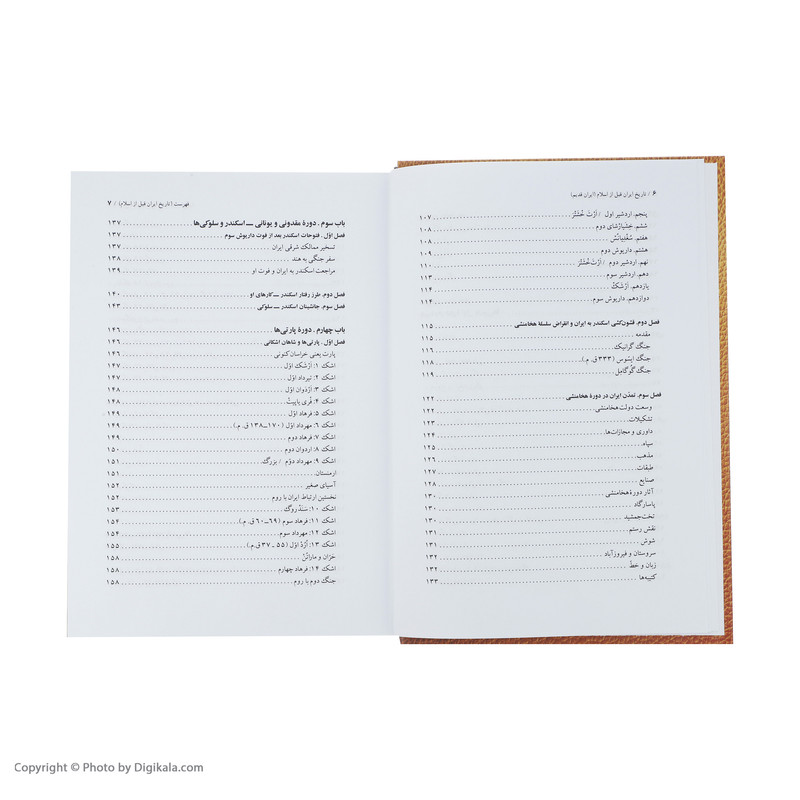 ۶ / تاریخ ایران قبل از اسلام (ایران قدیم)
پنجم. اردشیر اول / اَرْتَ خْشَثْرَ ..... ۱۰۷
ششم. خشیارشای دوم ..... ۱۰۸
هفتم. سُغْدیانُسْ ..... ۱۰۸
هشتم. داریوش دوم ..... ۱۰۹
نهم. اردشیر دوم / اَرْتَ‌خْشَثْرَ ..... ۱۱۰
دهم. اردشیر سوم ..... ۱۱۳
یازدهم. اَرْشَکْ ..... ۱۱۴
دوازدهم. داریوش سوم ..... ۱۱۴
فصل دوم. قشون‌کشی اسکندر به ایران و انقراض سلسلهٔ هخامنشی ..... ۱۱۵
مقدمه ..... ۱۱۵
جنگ گرانیک ..... ۱۱۶
جنگ ایسّوس (۳۳۳ ق.م) ..... ۱۱۸
جنگ گُوگامِل ..... ۱۱۹
فصل سوم. تمدن ایران در دورهٔ هخامنشی ..... ۱۲۲
وسعت دولت هخامنشی ..... ۱۲۲
تشکیلات ..... ۱۲۳
داوری و مجازات‌ها ..... ۱۲۴
سپاه ..... ۱۲۵
مذهب ..... ۱۲۶
طبقات ..... ۱۲۷
صنایع ..... ۱۲۸
آثار دورهٔ هخامنشی ..... ۱۳۰
پاسارگاد ..... ۱۳۰
تخت‌جمشید ..... ۱۳۰
نقش رستم ..... ۱۳۱
شوش ..... ۱۳۱
سروستان و فیروزآباد ..... ۱۳۲
زبان و خطّ ..... ۱۳۲
کتیبه‌ها ..... ۱۳۳
فهرست (تاریخ ایران قبل از اسلام) / ۷
باب سوم . دورهٔ مقدونی و یونانی ــ اسکندر و سلوکی‌ها ..... ۱۳۷
فصل اوّل . فتوحات اسکندر بعد از فوت داریوش سوم ..... ۱۳۷
تسخیر ممالک شرقی ایران ..... ۱۳۷
سفر جنگی به هند ..... ۱۳۸
مراجعت اسکندر به ایران و فوت او ..... ۱۳۹
فصل دوم. طرز رفتار اسکندر ــ کارهای او ..... ۱۴۰
فصل سوم. جانشینان اسکندر ــ سلوکی ..... ۱۴۳
باب چهارم . دورهٔ پارتی‌ها ..... ۱۴۶
فصل اوّل. پارتی‌ها و شاهان اشکانی ..... ۱۴۶
پارت یعنی خراسان کنونی ..... ۱۴۶
اشک ۱: اَرْشَک اوّل ..... ۱۴۷
اشک ۲: تیرداد اوّل ..... ۱۴۷
اشک ۳: اَرْدَوان اوّل ..... ۱۴۸
اشک ۴: فْری یاپِیتْ ..... ۱۴۸
اشک ۵: فرهاد اوّل ..... ۱۴۹
اشک ۶: مهرداد اوّل (۱۷۰ــ۱۳۸ ق.م.) ..... ۱۴۹
اشک ۷: فرهاد دوم ..... ۱۴۹
اشک ۸: اردوان دوم ..... ۱۵۰
اشک ۹: مهرداد دوّم / بزرگ ..... ۱۵۱
ارمنستان ..... ۱۵۱
آسیای صغیر ..... ۱۵۲
نخستین ارتباط ایران با روم ..... ۱۵۲
اشک ۱۰: سَنَدْروگ ..... ۱۵۳
اشک ۱۱: فرهاد سوم (۶۹ــ۶۰ ق.م.) ..... ۱۵۴
اشک ۱۲: مهرداد سوم ..... ۱۵۴
اشک ۱۳: اُرُدْ اوّل (۵۵ ـ ۳۷ ق.م.) ..... ۱۵۵
حَرّان و ماراتُنْ ..... ۱۵۸
اشک ۱۴: فرهاد چهارم ..... ۱۵۸
جنگ دوم با روم ..... ۱۵۸
Copyright © Photo by Digikala.com